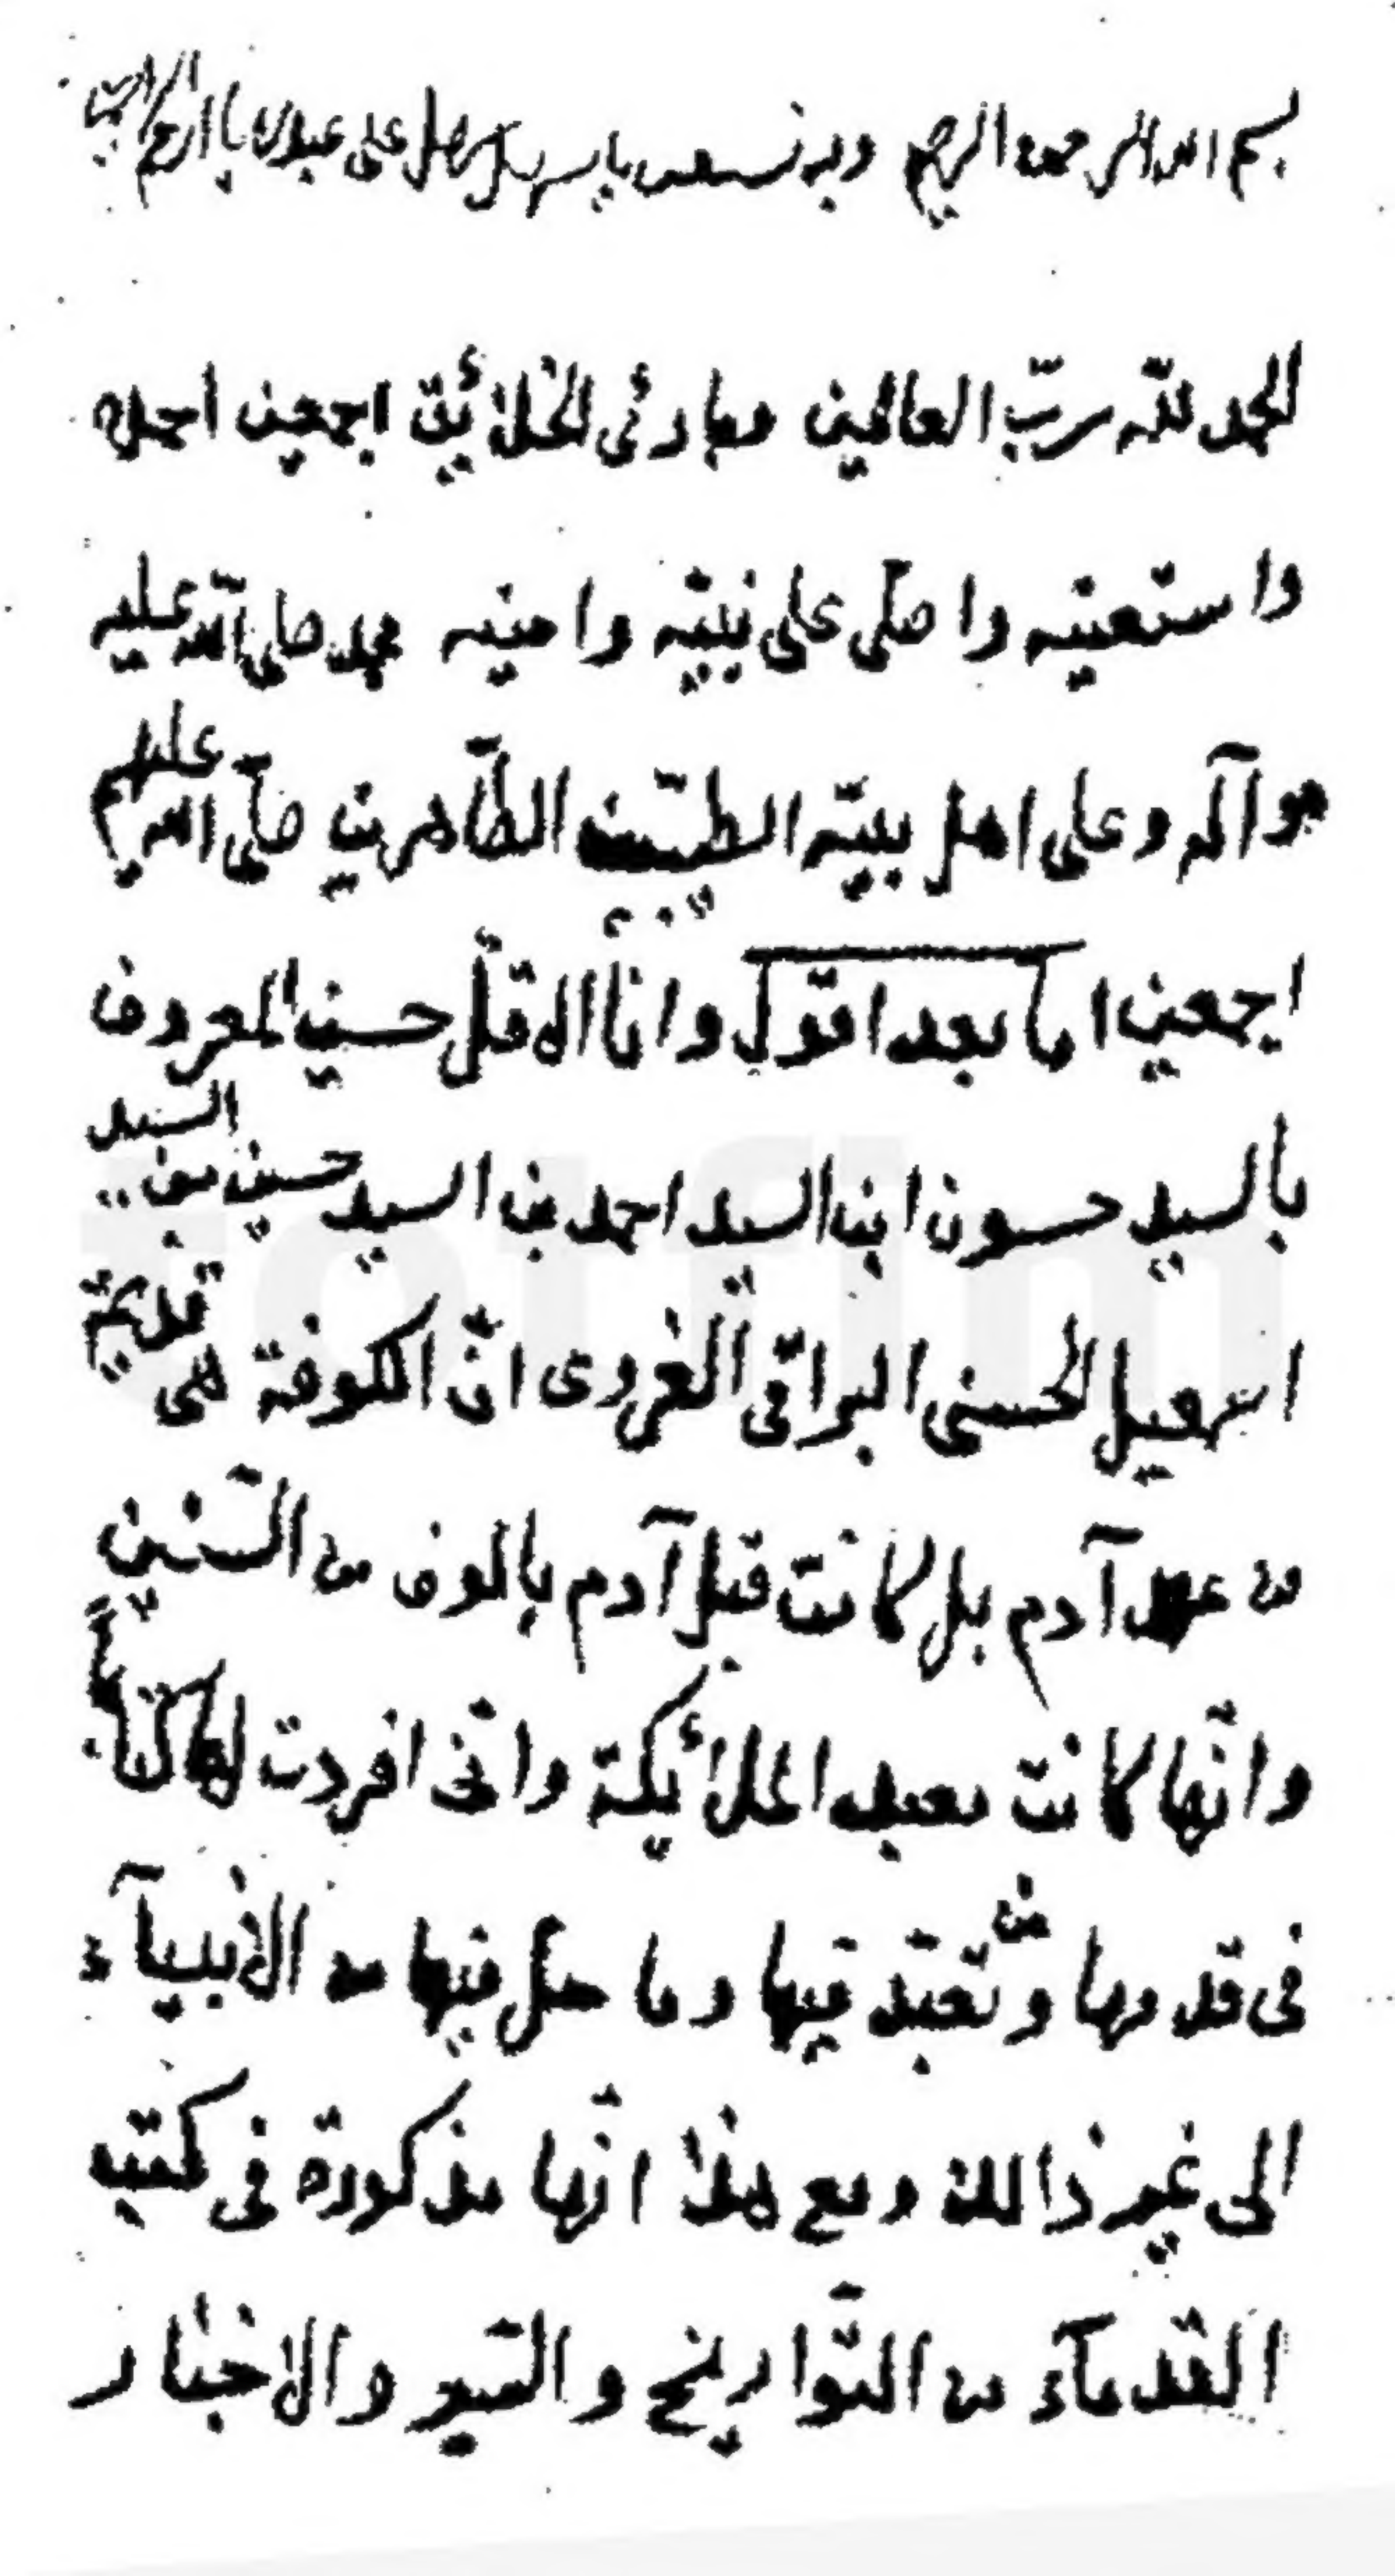 بسم الله الرحمن الرحيم وبه نستعين يا رب سهل على عبدك يا ارحم الراحمين
الحمد للّه ربّ العالمين وبارئ الخلائيق اجمعين احمده
واستعينه واصلّى على نبيّه وامينه محمد صلى الله عليه
وآله وعلى اهل بيته الطيّبين الطّاهرين صلّى الله عليهم
اجمعين اما بعد اقول وانا الاقلّ حسين المعروف
بالسيد حسون ابن السيد احمد بن السيد حسين بن السيد
اسمعيل الحسنى البراقى الغروى انّ الكوفة هى قديمة
من عهد آدم بل كانت قبل آدم بالوف من السّنين
وانّها كانت معبد الملائيكة وانّى افردت لها كتاباً
فى قدمها ومن تعبّد فيها وما حلّ فيها من الأنبيآء
الى غير ذالك ومع هذا انّها مذكورة فى كتب
القدمآء من التّواريخ والسّير والاخبار
totfim